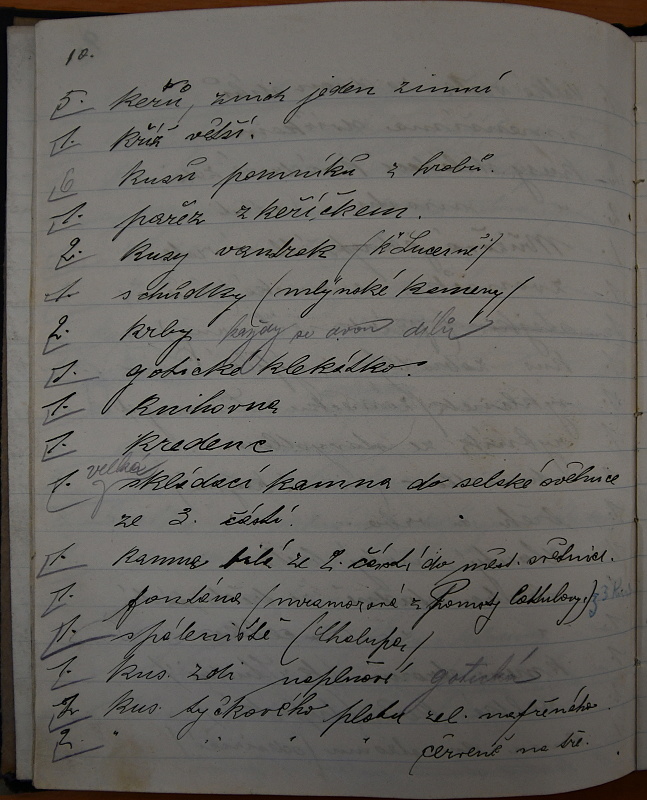 10.
5. keřů, z nich jeden zimní
1. kříž větší.
6 kusů pomníků z hrobů.
1. pařez z keříčkem.
2. kusy vandrek (k "Lucerně")
1. schůdky (mlýnské kameny)
2. krby každý se dvou dílů
1. gotické klekátko.
1. Knihovna
1. Kredenc
1. velká skládací kamna do selské světnice
ze 3. částí.
1. kamna bílé ze 2. částí do měst. světnice.
1. fontána (mramorová z
1. spáleniště (Chalupa)
1. kus. zdi gotická
2. kus. tyčkového plotu zel. natřeného.
2. " " " " červeně na tře.